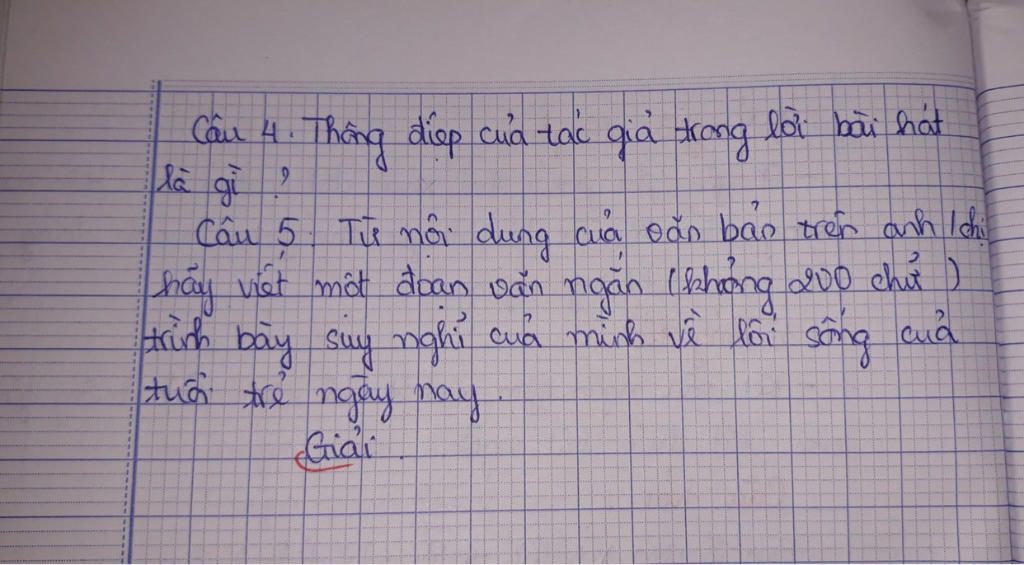 Câu 4. Thông điệp của tác giả trong lời bài hát
là gì ?
Câu 5. Từ nội dung của văn bản trên anh/chị
hãy viết một đoạn văn ngắn (khoảng 200 chữ)
trình bày suy nghĩ của mình về lối sống của
tuổi trẻ ngày nay.
Giải.